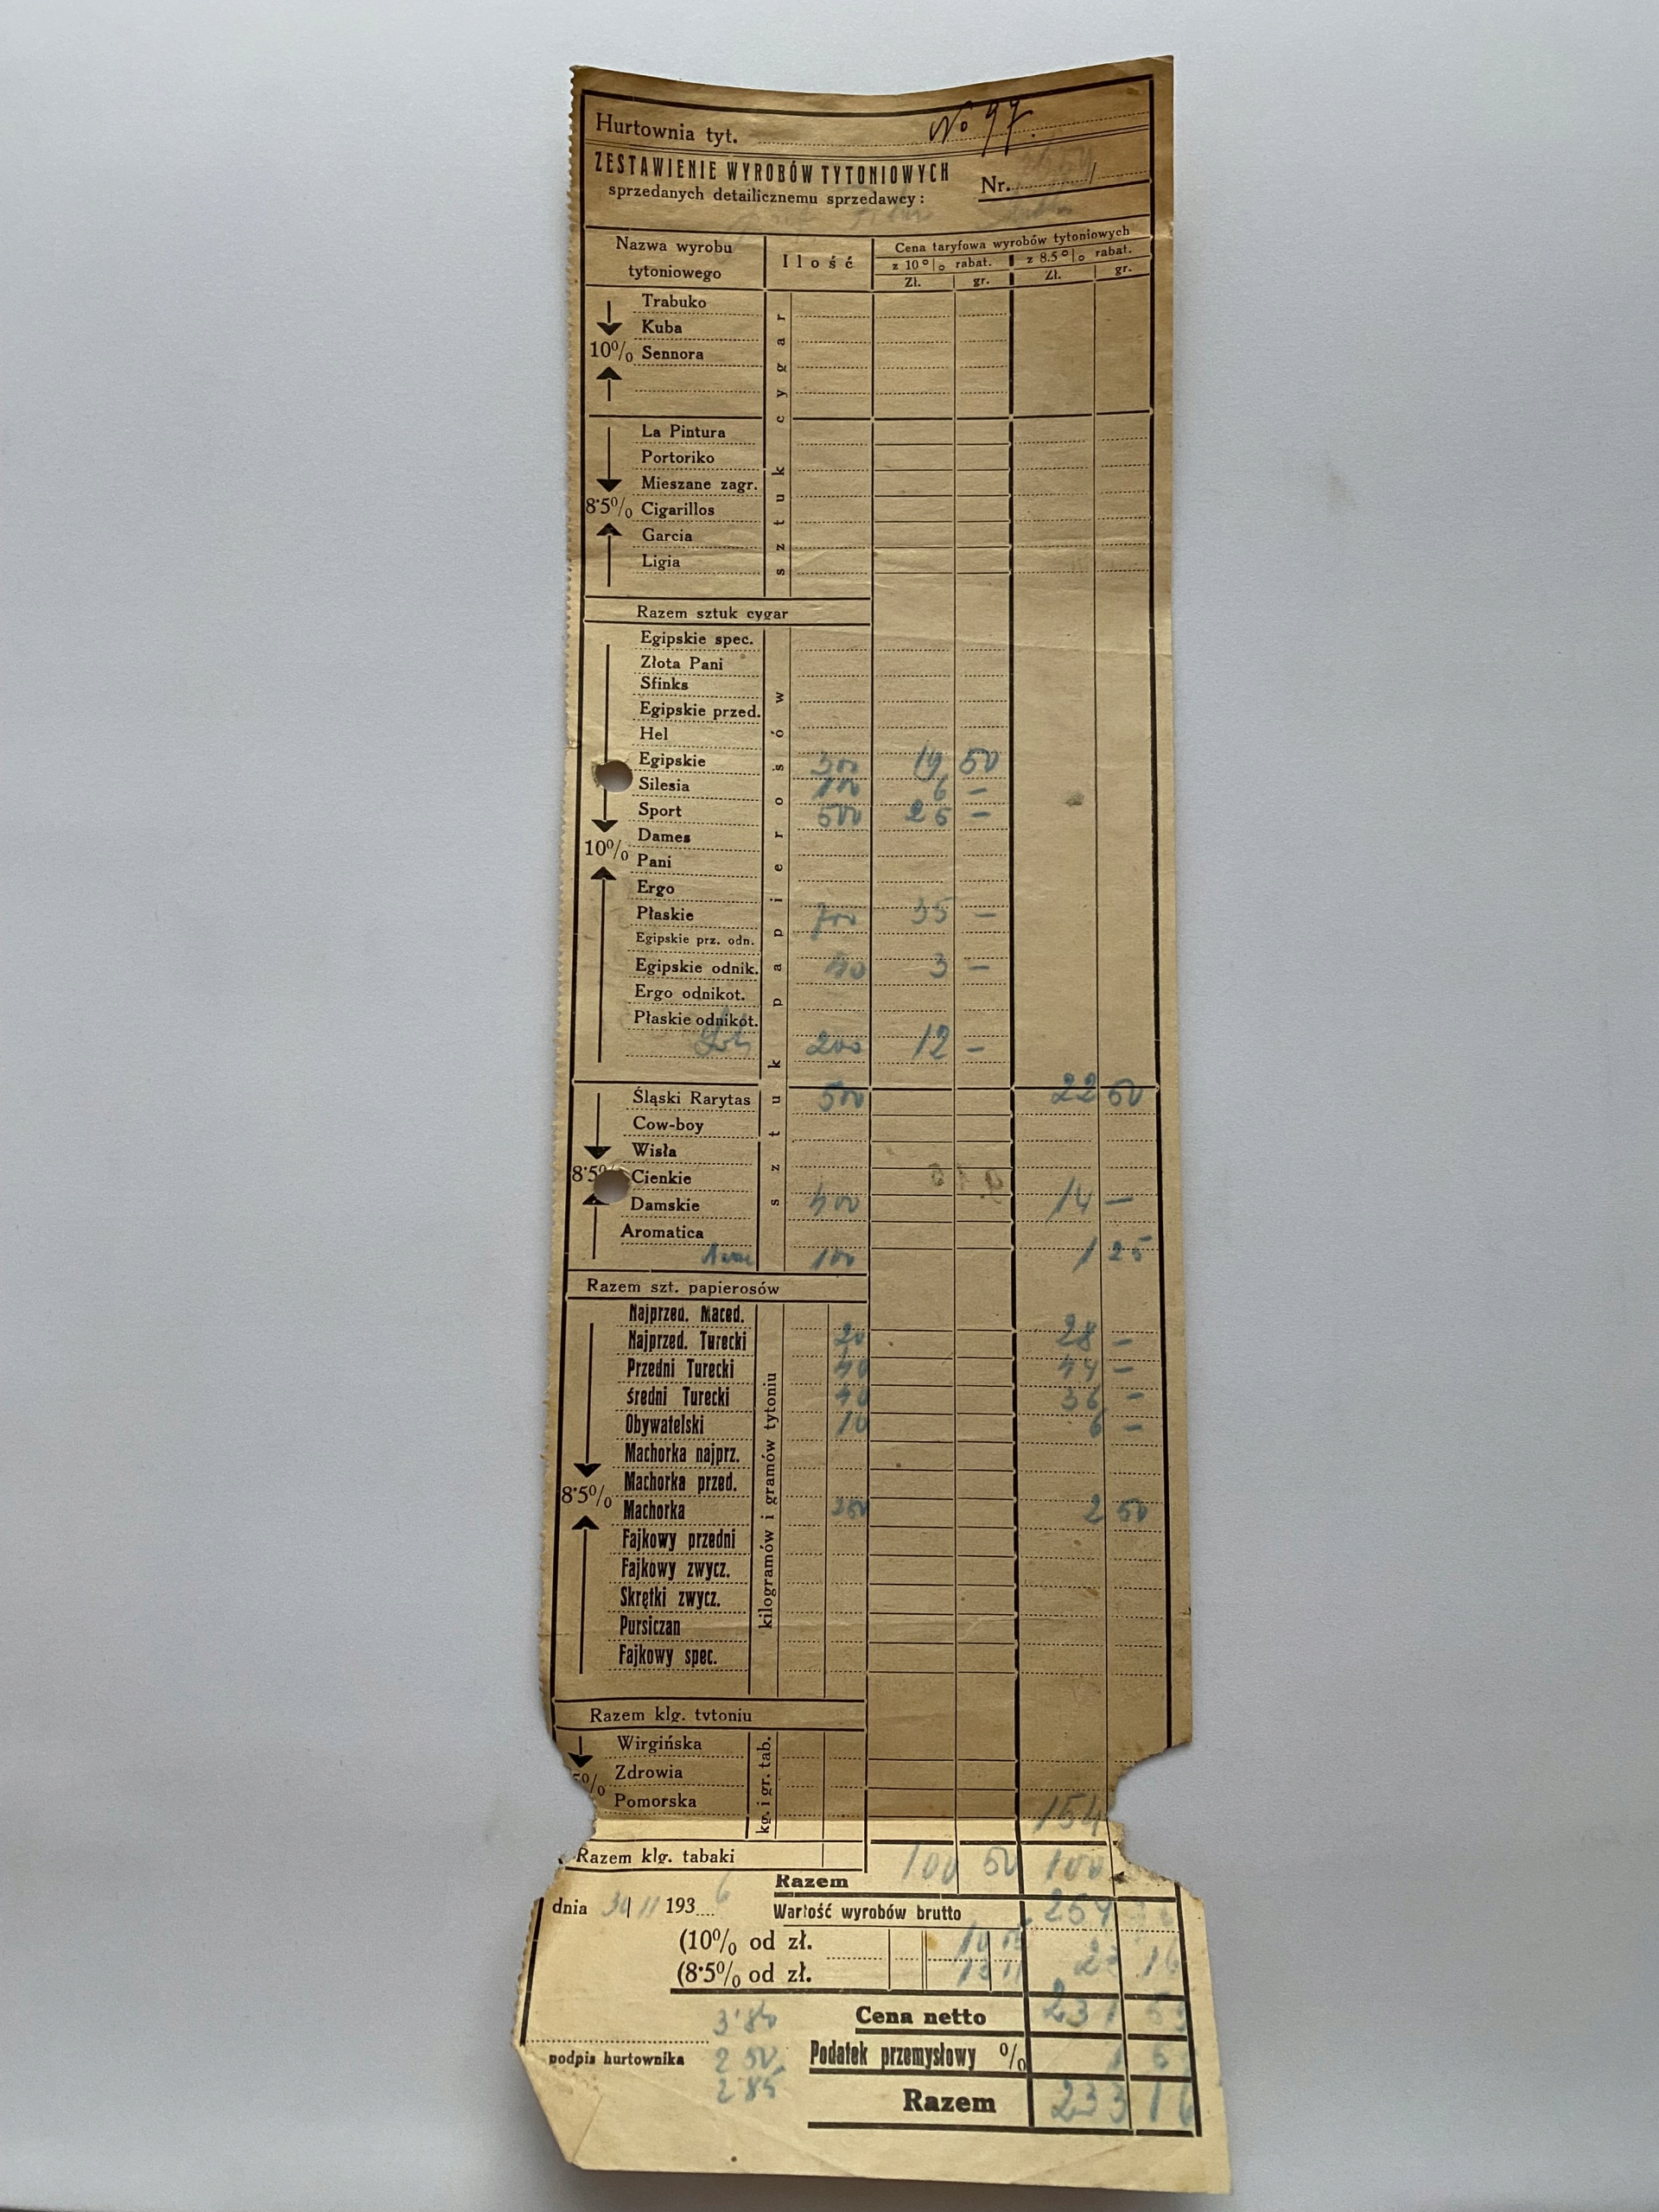 Hurtownia tyt. No 97.
ZESTAWIENIE WYROBÓW TYTONIOWYCH
sprzedanych detailicznemu sprzedawcy:
Nr. /
Nazwa wyrobu tytoniowego
Ilość
Cena taryfowa wyrobów tytoniowych
z 10% rabat. z 8.5% rabat.
Zł. gr. Zł. gr.
sztuk cygar
Trabuko
Kuba
10% Sennora
La Pintura
Portoriko
Mieszane zagr.
8·5% Cigarillos
Garcia
Ligia
Razem sztuk cygar
sztuk papierosów
Egipskie spec.
Złota Pani
Sfinks
Egipskie przed.
Hel
Egipskie 300 19 50
Silesia 100 6 —
Sport 500 25 —
Dames
10% Pani
Ergo
Płaskie 700 35 —
Egipskie prz. odn.
Egipskie odnik. 40 3 —
Ergo odnikot.
Płaskie odnikot.
200 12 —
Śląski Rarytas 500 22 50
Cow-boy
Wisła
8·5% Cienkie
Damskie 400 14 —
Aromatica
100 1 25
Razem szt. papierosów
kilogramów i gramów tytoniu
Najprzed. Maced.
Najprzed. Turecki 20 28 —
Przedni Turecki 40 44 —
średni Turecki 40 36 —
Obywatelski 10 6 —
Machorka najprz.
8·5% Machorka przed.
Machorka 250 2 50
Fajkowy przedni
Fajkowy zwycz.
Skrętki zwycz.
Pursiczan
Fajkowy spec.
Razem klg. tytoniu
kg. i gr. tab.
Wirgińska
Zdrowia
Pomorska
154
Razem klg. tabaki
Razem 100 50 100
dnia 30/11 1936
Wartość wyrobów brutto 254
(10% od zł. 10 05
(8·5% od zł. 13 11 23 16
Cena netto 231
podpis hurtownika
3'80
2 50
2 85
Podatek przemysłowy % 1
Razem 233 16